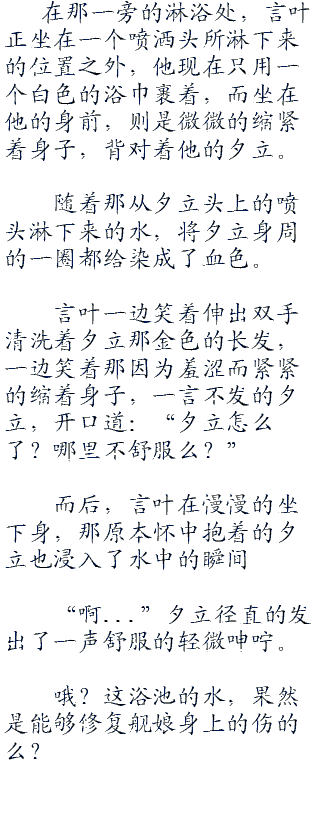 在那一旁的淋浴处，言叶
正坐在一个喷洒头所淋下来
的位置之外，他现在只用一
个白色的浴巾裹着，而坐在
他的身前，则是微微的缩紧
着身子，背对着他的夕立。
随着那从夕立头上的喷
头淋下来的水，将夕立身周
的一圈都给染成了血色。
言叶一边笑着伸出双手
清洗着夕立那金色的长发，
一边笑着那因为羞涩而紧紧
的缩着身子，一言不发的夕
立，开口道：“夕立怎么
了？哪里不舒服么？”
而后，言叶在慢慢的坐
下身，那原本怀中抱着的夕
立也浸入了水中的瞬间
“啊...”夕立径直的发
出了一声舒服的轻微呻咛。
哦？这浴池的水，果然
是能够修复舰娘身上的伤的
么？